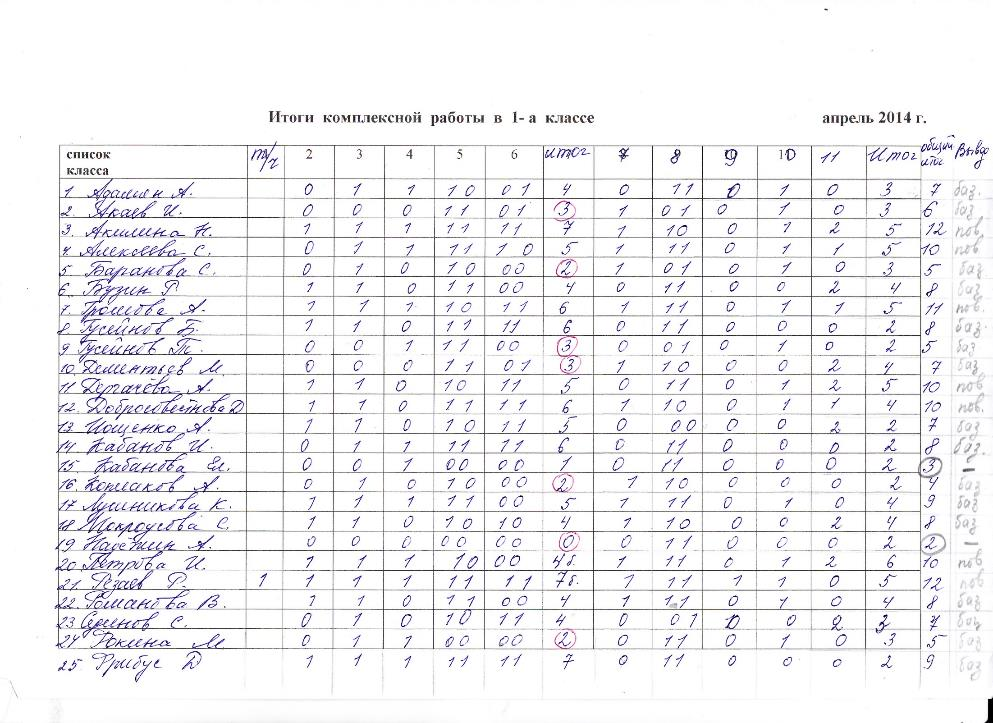 Итоги комплексной работы в 1- а классе апрель 2014 г.
список класса т/ч 2 3 4 5 6 итог 7 8 9 10 11 Итог общий итог Вывод
1. Адамян А. 0 1 1 1 0 0 1 4 0 1 1 0 1 0 3 7 баз.
2. Акаев И. 0 0 0 1 1 0 1 3 1 0 1 0 1 0 3 6 баз
3. Акилина Н. 1 1 1 1 1 1 1 7 1 1 0 0 1 2 5 12 пов.
4. Алексеева С. 0 1 1 1 1 1 0 5 1 1 1 0 1 1 5 10 пов
5. Баранова С. 0 1 0 1 0 0 0 2 1 0 1 0 1 0 3 5 баз
6. Бузин Р. 1 1 0 1 1 0 0 4 0 1 1 0 0 2 4 8 баз
7. Громова А. 1 1 1 1 0 1 1 6 1 1 1 0 1 1 5 11 пов.
8 Гусейнов Б. 1 1 0 1 1 1 1 6 0 1 1 0 0 0 2 8 баз.
9 Гусейнов Т. 0 0 1 1 1 0 0 3 0 0 1 0 1 0 2 5 баз
10. Дементьев М. 0 0 0 1 1 0 1 3 1 1 0 0 0 2 4 7 баз
11 Дергачева А. 1 1 0 1 0 1 1 5 0 1 1 0 1 2 5 10 пов
12. Добросовестнова Д 1 1 0 1 1 1 1 6 1 1 0 0 1 1 4 10 пов.
13 Иощенко А. 1 1 0 1 0 1 1 5 0 0 0 0 0 2 2 7 баз
14 Кабанов И. 0 1 1 1 1 1 1 6 0 1 1 0 0 0 2 8 баз.
15 Кабанова Ел. 0 0 1 0 0 0 0 1 0 1 1 0 0 0 2 3 –
16. Колмаков А. 0 1 0 1 0 0 0 2 1 1 0 0 0 0 2 4 баз
17 Лушникова К. 1 1 1 1 1 0 0 5 1 1 1 0 1 0 4 9 баз
18 Мокроусова С. 1 1 0 1 0 1 0 4 1 1 0 0 0 2 4 8 баз
19 А. 0 0 0 0 0 0 0 0 0 1 1 0 0 0 2 2 –
20 Петрова И. 1 1 1 1 0 0 0 4б. 1 1 1 0 1 2 6 10 пов
21. Резаев Р. 1 1 1 1 1 1 1 1 7б. 1 1 1 1 1 0 5 12 пов
22. Романова В. 1 1 0 1 1 0 0 4 1 1 1 0 1 0 4 8 баз
23 Семинов С. 0 1 0 1 0 1 1 4 0 0 1 0 0 2 3 7 баз
24 Фокина М 0 1 1 0 0 0 0 2 0 1 1 0 1 0 3 5 баз
25 Фрибус D 1 1 1 1 1 1 1 7 0 1 1 0 0 0 2 9 баз